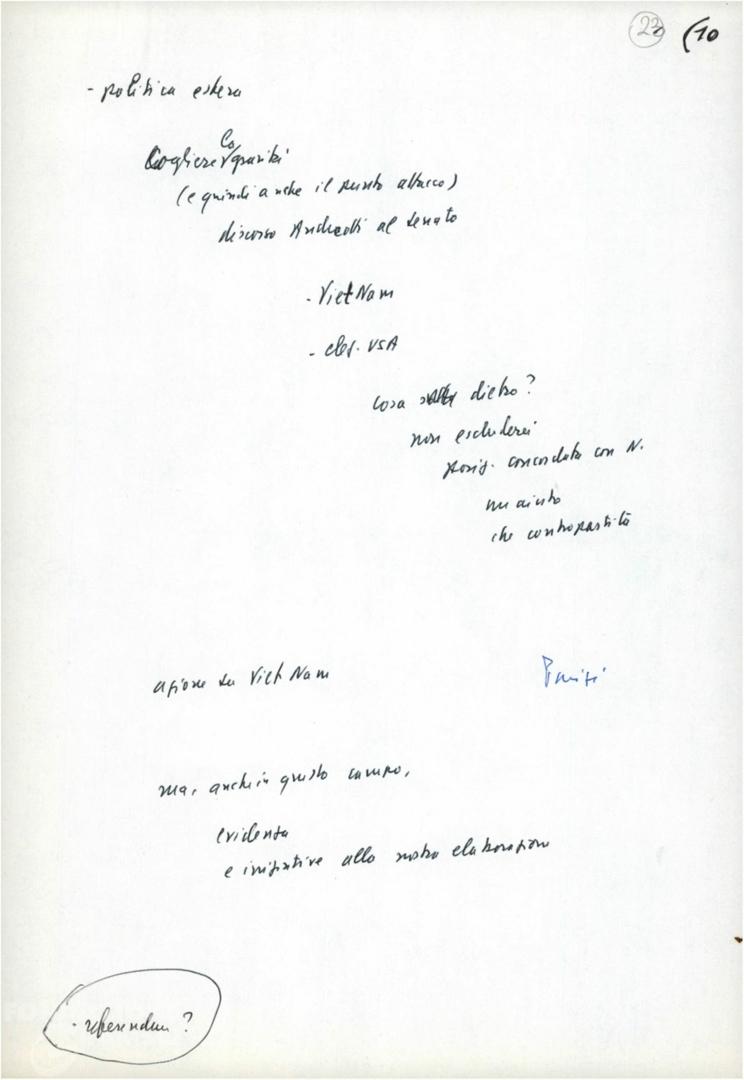 23 (10
- politica estera
Cogliere Co gravità
(e quindi anche il punto attacco)
discorso Andreotti al Senato
- VietNam
- del. USA
Cosa dietro?
non escluderei
posiz. concordata con N.
un aiuto
che contropartita
azione su Viet Nam
Parigi
ma, anche in questo campo,
evidenza
e iniziative alla nostra elaborazione
- referendum ?